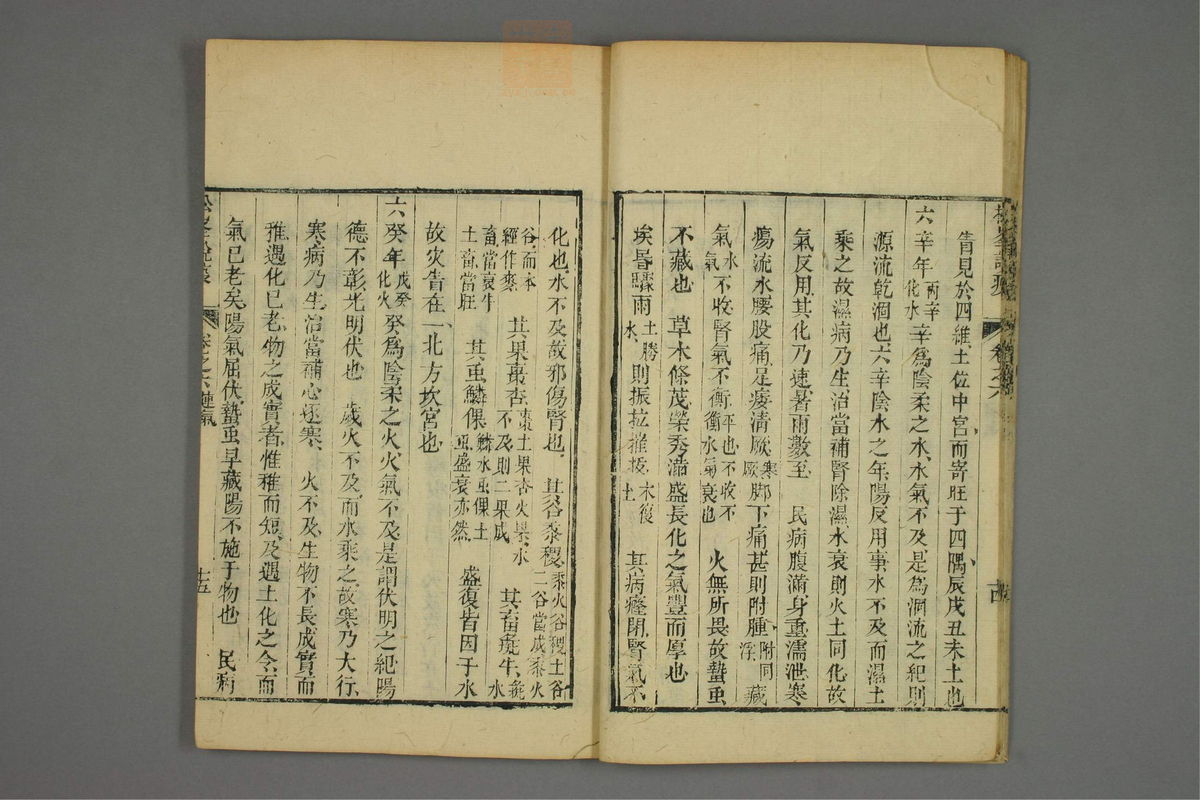 眚見於四維土位中宮而寄旺于四隅辰戌丑未土也
六辛年丙辛化水辛爲陰柔之水水氣不及是爲涸流之紀則
源流乾涸也六辛陰水之年陽反用事水不及而濕土
乘之故濕病乃生治當補腎除濕水衰則火土同化故
氣反用其化乃速暑雨數至　民病腹滿身重濡泄寒
瘍流水腰股痛足痿清厥寒厥脚下痛甚則附腫附同浮藏
氣水氣不收腎氣不衡衡平也不收不衡水氣衰也火無所畏故蟄虫
不藏也　草木條茂榮秀滿盛長化之氣豐而厚也
埃昏驟雨土勝水則振拉摧拔木復土　其病癃閉腎氣不
化也水不及故邪傷腎也　其谷黍稷黍火谷稷土谷二谷當成黍火
谷而本經作麥　其果棗杏棗土果杏火果水不及則二果成　其畜彘牛彘水
畜當衰牛土畜當旺　其虫鱗倮鱗水虫倮土虫盛衰亦然　盛復皆因于水
故灾眚在一北方坎宮也
六癸年戊癸化火癸爲陰柔之火火氣不及是謂伏明之紀陽
德不彰光明伏也　歲火不及而水乘之故寒乃大行
寒病乃生治當補心逐寒　火不及生物不長成實而
稚遇化已老物之成實者惟稚而短及遇土化之令而
氣已老矣陽氣屈伏蟄虫早藏陽不施于物也　民病
卷之六
十五